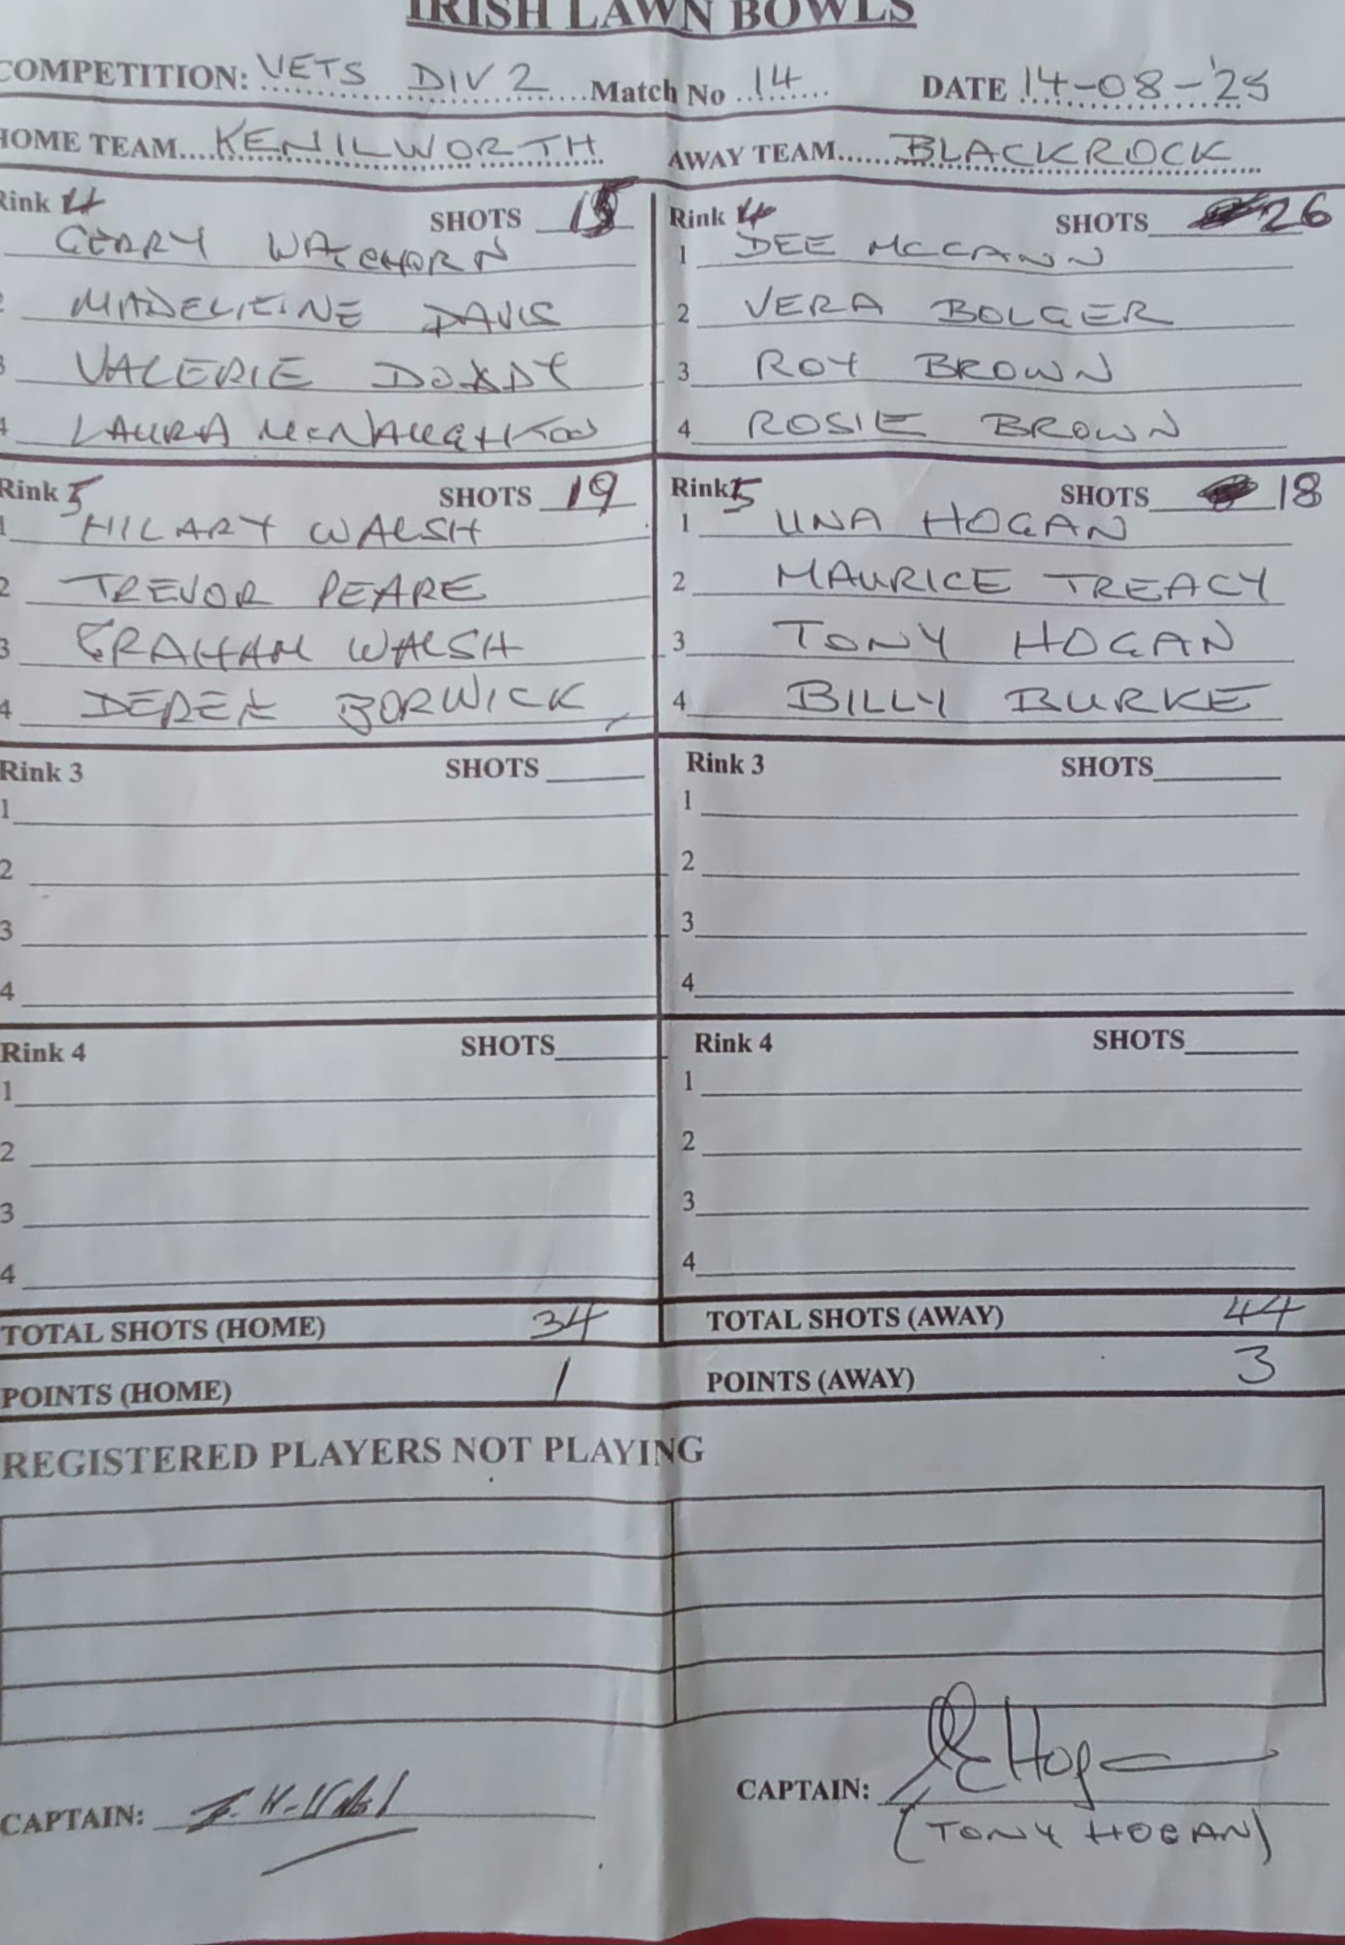 IRISH LAWN BOWLS
COMPETITION: VETS DIV 2 Match No 14 DATE 14-08-'25
HOME TEAM KENILWORTH AWAY TEAM BLACKROCK
Rink 4 SHOTS 15
GERRY WATCHORN
2 MADELEINE DAVIS
3 VALERIE DOXDY
4 LAURA McNAUGHTON
Rink 4 SHOTS 26
1 DEE McCANN
2 VERA BOLGER
3 ROY BROWN
4 ROSIE BROWN
Rink 5 SHOTS 19
1 HILARY WALSH
2 TREVOR PEARE
3 GRAHAM WALSH
4 DEREK BORWICK
Rink 5 SHOTS 18
1 UNA HOGAN
2 MAURICE TREACY
3 TONY HOGAN
4 BILLY BURKE
Rink 3 SHOTS
1
2
3
4
Rink 3 SHOTS
1
2
3
4
Rink 4 SHOTS
1
2
3
4
Rink 4 SHOTS
1
2
3
4
TOTAL SHOTS (HOME) 34 TOTAL SHOTS (AWAY) 44
POINTS (HOME) 1 POINTS (AWAY) 3
REGISTERED PLAYERS NOT PLAYING
CAPTAIN:
CAPTAIN:
(TONY HOGAN)